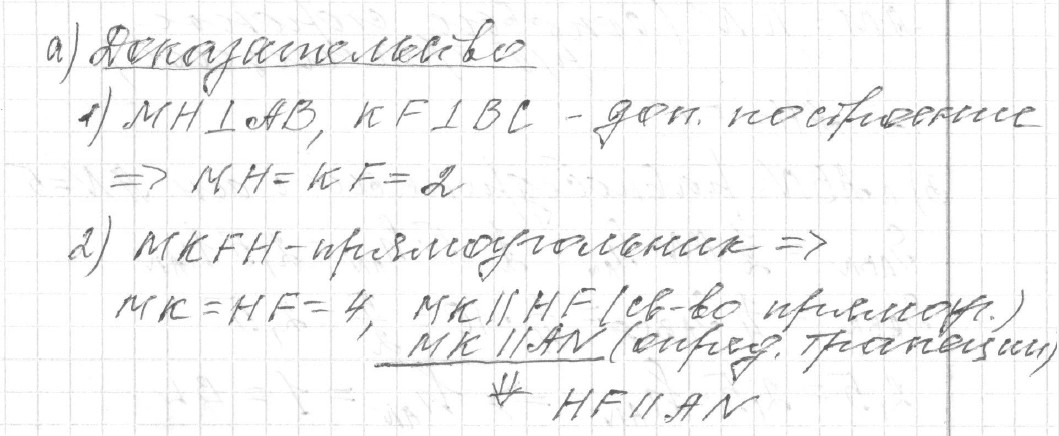 а) Доказательство
1) MH⊥AB, KF⊥BC - доп. построение
=> MH = KF = 2
2) MKFH - прямоугольник =>
MK = HF = 4, MK || HF (св-во прямоуг.)
MK || AN (опред. трапеции)
⇓ HF || AN